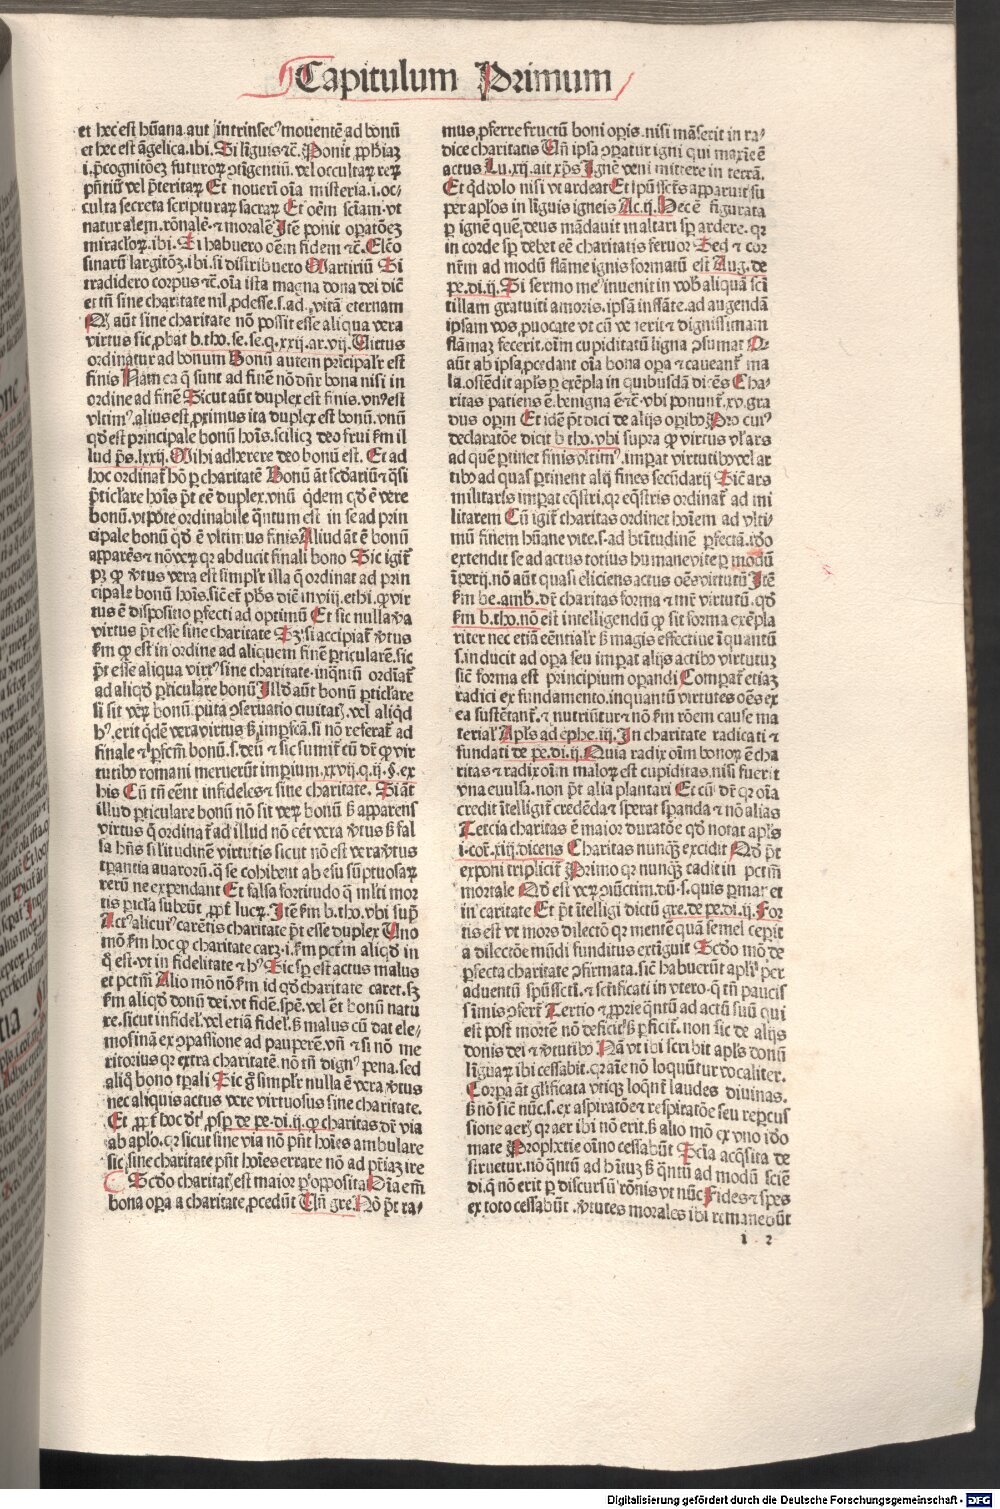 Capitulum Primum
et hec est hūana. aut intrinsecꝰ mouentē ad bonū
et hec est āgelica. ibi. Si linguis ⁊c̄. Ponit ꝓphiaꝫ
i. p̄cognitōeꝫ futuroꝝ ↄtigentiū. vel occultaꝝ reꝝ
pn̄tiū vel p̄teritaꝝ Et nouerī oīa misteria. i. oc⸗
culta secreta scripturaꝝ sacraꝝ Et oēm sciam. vt
naturalem. rōnalē. ⁊ moralē Itē ponit oꝑatōeꝫ
miraculoꝝ. ibi. Si habuero oēm fidem ⁊c̄. Elēo
sinarū largitōꝫ. ibi. si distribuero Martiriū Si
tradidero corpus ⁊c̄. oīa ista magna dona dei dic̄
et tn̄ sine charitate nil ꝓdesse. s. ad vitā eternam
autē sine charitate nō possit esse aliqua vera
virtus sic ꝓbat b. tho. se. se. q. xxij. ar. vij. Uirtus
ordinatur ad bonum Bonū autem pricipalr̄ est
finis Nam ea q̄ sunt ad finē nō dn̄r bona nisi in
ordine ad finē Sicut aūt duplex est finis. vnꝰ est
vltimꝰ. alius est ꝓximus ita duplex est bonū. vnū
qd̄ est principale bonū hoīs. scilicꝫ deo frui km̄ il
lud ps̄. lxxij. Mihi adherere deo bonū est. Et ad
hoc ordinat̄ hō ꝑ charitatē Bonū āt scdariū ⁊ q̄si
p̄ticlare hoīs pt̄ cē duplex. vnū qdem qd̄ ē vere
bonū. vtpote ordinabile q̄ntum est in se ad prin
cipale bonū qd̄ ē vltimus finis Aliud āt ē bonū
apparēs ⁊ nō veꝝ qꝛ abducit finali bono Sic igit̄
pꝫ ꝙ v̄tus vera est simplr̄ illa q̄ ordinat ad prin
cipale bonū hoīs. sic̄ et phs̄ dic̄ in viij. ethi. ꝙ vir
tus ē dispositio ꝑfecti ad optimū Et sic nulla va̅
virtus pt̄ esse sine charitate Sꝫ si accipiat̄ v̄tus
km̄ ꝙ est in ordine ad aliquem finē ꝑticularē. sic
pt̄ esse aliqua virtꝰ sine charitate. inq̄ntū ordiat̄
ad aliqd̄ ꝑticulare bonū Illd̄ aūt bonū ꝑticlare
si sit veꝝ bonū. puta ↄseruatio ciuitatꝭ. vel aliqd̄
hꝰ. erit qdē vera virtus sꝫ imꝑfcā. si nō referat̄ ad
finale ⁊ ꝑfcm̄ bonū. s. deū ⁊ sic sumit̄ cū dr̄ ꝙ vir
tutibꝰ romani meruerūt imperium. xxvij. q. ij. §. ex
his Cū tn̄ eēnt infideles ⁊ sine charitate. Si āt
illud ꝑticulare bonū nō sit veꝝ bonū sꝫ apparens
virtus q̄ ordinat̄ ad illud nō cēt vera v̄tus sꝫ fal
sa hn̄s silitudinē virtutis sicut nō est vera v̄tus
tꝑantia auaroꝝ. q̄ se cohibent ab esu sūptuosaꝝ
reꝝ ne expendant Et falsa fortitudo q̄ mlti mor
tis picla subeūt ꝓpt̄ lucꝝ. Itē km̄ b. tho. vbi sup̄
Actꝰ alicuiꝰ carētis charitate pt̄ esse duplex Uno
mō km̄ hoc ꝙ charitate carꝫ. i. km̄ pctm̄ aliqd̄ in
q̄ est. vt in fidelitate ⁊ hꝰ Sic sp̄ est actus malus
et pctm̄ Alio mō nō km̄ id qd̄ charitate caret. sꝫ
km̄ aliqd̄ donū dei. vt fidē. spē. vel ēt bonū natu
re. sicut infidelꝭ. vel etiā fidelꝭ. sꝫ malus cū dat ele⸗
mosinā ex ↄpassione ad pauperē. vn̄ ⁊ si nō me
ritorius qꝛ extra charitatē. nō tn̄ dignꝰ pena. sed
aliq̄ bono tꝑali Sic g̊ simplr̄ nulla ē vera v̄tus
nec aliquis actus vere virtuosus sine charitate.
Et ꝓpt̄ hoc dr̄. ꝓsp. de pe. di. ij. ꝙ charitas dr̄ via
ab aplo. qꝛ sicut sine via nō pn̄t hoīes ambulare
sic sine charitate pn̄t hoīes errare nō ad pr̄iaꝫ ire
Scdo charitatꝭ est maior ꝑ oꝑposita Oīa em̄
bona oꝑa a charitate ꝓcedūt Un̄ gre. Nō pt̄ ra⸗
mus ꝓferre fructū boni oꝑis. nisi māserit in ra⸗
dice charitatis Un̄ ipsa ↄꝑatur igni qui maxīe ē
actus Lu. xij. ait xp̄s Ignē veni mittere in terrā.
Et qd̄ volo nisi vt ardeat Et spūs sct̄s apparuit su
per aplos in līguis igneis Ac. ij. Hec ē figurata
ꝑ ignē quē deus mādauit in altari sp̄ ardere. qꝛ
in corde sp̄ debet eē charitatis feruor Sed ⁊ cor
nr̄m ad modū flāme ignis formatū est Aug. de
pe. di. ij. Si sermo meꝰ inuenit in vob̄ aliquā sci
tillam gratuiti amoris. ipsā inflāte. ad augendā
ipsam vos ꝓuocate vt cū ve ierit ⁊ dignissimam
flāmaꝫ fecerit. oīm cupiditatū ligna ↄsumat
aūt ab ipsa ꝓcedant oīa bona oꝑa ⁊ caueant̄ ma
la. ostēdit aplꝰs ꝑ exēpla in quibusdā dicēs Cha⸗
ritas patiens ē. benigna ē ⁊c̄. vbi ponunt̄. xv. gra
dus oꝑm Et idē pt̄ dici de alijs oꝑibꝰ Pro cuiꝰ
declaratōe dicit b tho. vbi supra ꝙ virtus vl̄ ars
ad quē ꝑtinet finis vltimꝰ. imꝑat virtutibꝰ vel ar
tibꝰ ad quas ꝑtinent alij fines secūdarij Sic̄ ars
militarꝭ imꝑat eq̄stri. qꝛ eq̄stris ordinat̄ ad mi
litarem Cū igit̄ charitas ordinet hoīem ad vlti⸗
mū finem hūane vite. s. ad btītudinē ꝑfectā. ido
extendit se ad actus totius humane vite ꝑ modū
īperij. nō aūt quasi eliciens actus oēs virtutū Itē
km̄ be. amb. dr̄ charitas forma ⁊ mr̄ virtutū. qd̄
km̄ b. tho. nō est intelligendū ꝙ sit forma exēpla
riter nec etiā eēntialr̄ sꝫ magis effectiue īquantū
s. inducit ad oꝑa seu imꝑat alijs actibꝰ virtutuꝫ
sic̄ forma est principium oꝑandi Comꝑat̄ etiaꝫ
radici ex fundamento. inquantū virtutes oēs ex
ea sustētant̄. ⁊ nutriūtur ⁊ nō km̄ rōem cause ma
terialꝭ Aplꝰs ad ephe. iij. In charitate radicati ⁊
fundati de pe. di. ij. Quia radix oīm bonoꝝ ē cha
ritas ⁊ radix oīm maloꝝ est cupiditas. nisi fuerit
vna euulsa. non pt̄ alia plantari Et cū dr̄ qꝛ oīa
credit ītelligit̄ credēda ⁊ sperat speranda ⁊ nō alias
Tercia charitas ē maior duratōe qd̄ notat aplꝰs
i. cor. xiij. dicens Charitas nunqꝫ excidit Qd̄ pt̄
exponi triplicit̄ Primo qꝛ nunqꝫ cadit in pctm̄
mortale Qd̄ est veꝝ ↄiūctim. dū. s. quis ꝑmanet
in caritate Et pt̄ ītelligi dictū gre. de pe. di. ij. For
tis est vt mors dilectō qꝛ mentē quā semel ceperit
a dilectōe mūdi funditus extinguit Scdo mō de
ꝑfecta charitate ↄfirmata. sic̄ habuerūt apli per
aduentū spūssct̄i. ⁊ sct̄ificati in vtero. q̄ tn̄ paucis
simis ↄfert̄ Tertio ⁊ ꝓprie q̄ntū ad actū suū qui
est post mortē nō deficit sꝫ ꝑficit̄. non sic de alijs
donis dei ⁊ v̄tutibꝰ Nā vt ibi scribit aplꝰs donū
līguaꝝ ibi cessabit. qꝛ aīe nō loquūtur vocaliter.
Corꝑa āt glificata vtiqꝫ loqn̄t̄ laudes diuinas.
sꝫ nō sic̄ nūc. s. ex aspiratōe ⁊ respiratōe seu reꝑcus
sione aerꝭ qꝛ aer ibi nō erit. sꝫ alio mō ex vno ido
mate Prophetie oīno cessabūt Scīa acq̄sita de
struetur. nō q̄ntū ad hītuꝫ sꝫ q̄ntū ad modū scie
di. q̄ nō erit ꝑ discursū rōnis vt nūc Fides ⁊ spes
ex toto cessabūt. v̄tutes morales ibi remanebūt
i 2
Digitalisierung gefördert durch die Deutsche Forschungsgemeinschaft - DFG